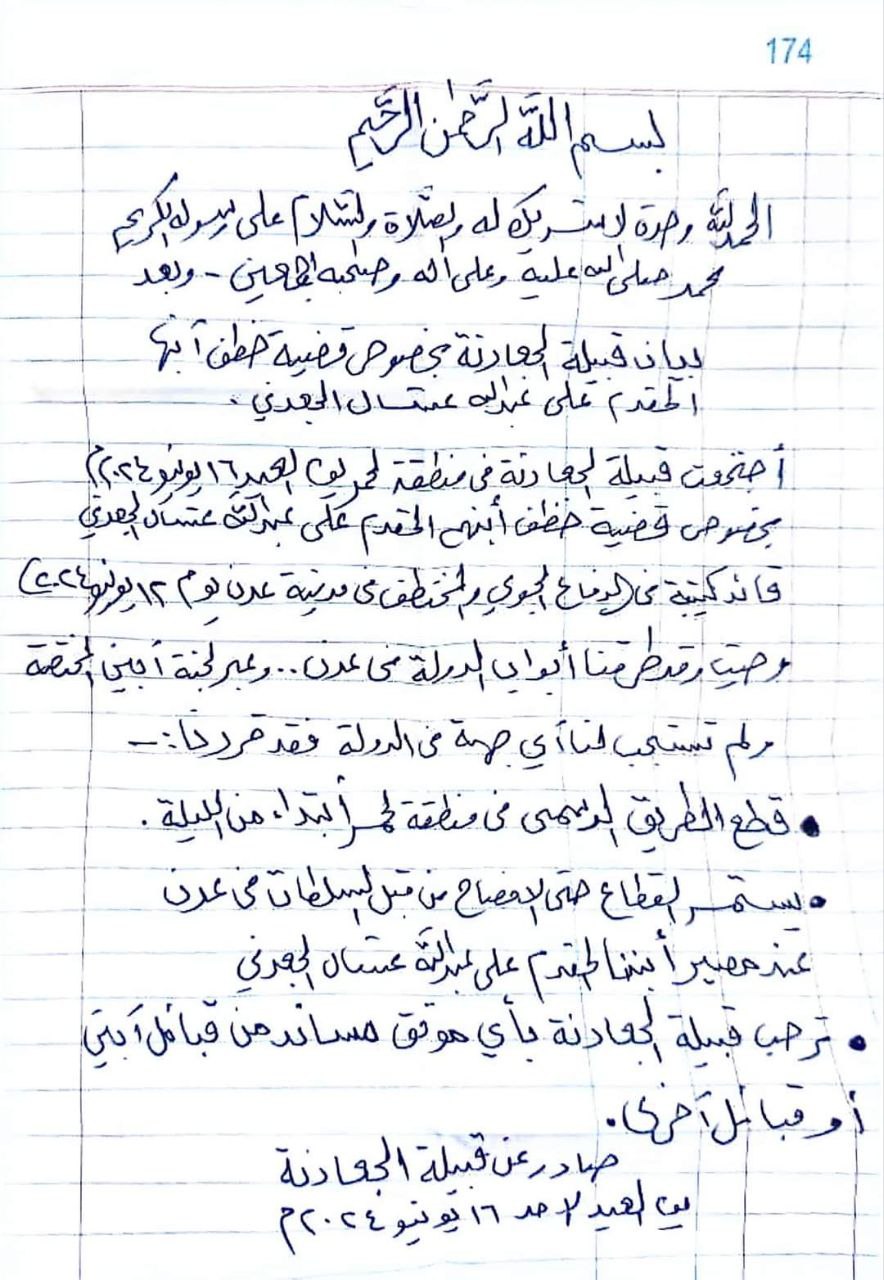 174
بسم اللَّه الرَّحمٰن الرَّحيم
الحمدللَّه وحدة لا شريك له والصَّلاة والسَّلام على رسوله الكريم
محمد صلى الله علية وعلى أله وصحبه اجمعين - وبعد
بيان قبيلة الجعادنة بخصوص قضية خطف آبنها
المقدم على عبدالله عشال الجعدني .
أجتمعت قبيلة الجعادنة في منطقة لحمر يوم العيد ١٦ يونيو ٢٠٢٤م
بخصوص قضية خطف أبنهم المقدم على عبداللَّه عشال الجعدني
قائد كتيبة في الدفاع الجوي والمختطف في مدينة عدن يوم ١٢ يونيو ٢٠٢٤م
وحيث وقد طرقنا أبواب الدولة في عدن .. وعبر لجنة أبين المختصة
ولم تستجب لنا أي جهة في الدولة فقد قررنا :-
• قطع الطريق الرسمى في منطقة لحمر أبتداء من الليلة .
• يستمر القطاع حتى الافصاح من قبل السلطات في عدن
عند مصير أبننا المقدم على عبداللَّه عشال الجعدني
• ترحب قبيلة الجعادنة بأي موقق مساند من قبائل آبين
أو قبائل آخرى .
صادر عن قبيلة الجعادنة
يوم العيد لاحد ١٦ يونيو ٢٠٢٤م